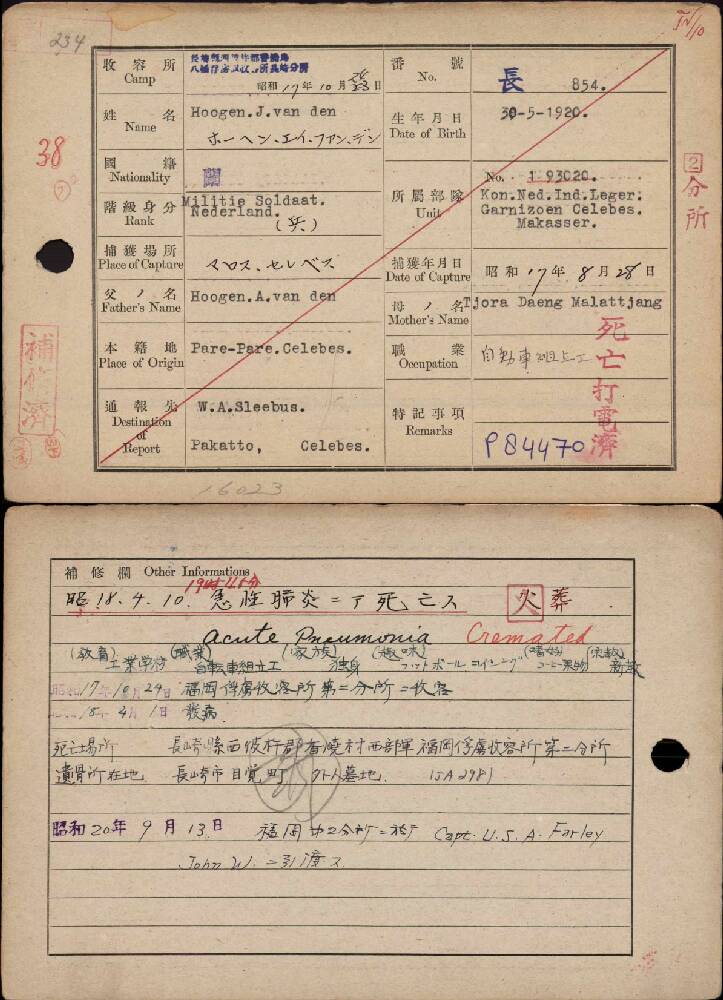 234
IN/10
収容所
Camp
昭和17年10月23日
番號
No.
長 854.
姓名
Name
Hoogen.J.van den
ホーヘン.エイ.ファン.デン
生年月日
Date of Birth
30-5-1920.
38
國籍
Nationality
蘭
所屬部隊
Unit
No. 193020.
Kon.Ned.Ind.Leger:
Garnizoen Celebes.
Makasser.
②分所
階級身分
Rank
Militie Soldaat.
Nederland.
(兵)
捕獲場所
Place of Capture
マロス.セレベス
捕獲年月日
Date of Capture
昭和17年8月28日
父ノ名
Father's Name
Hoogen.A.van den
母ノ名
Mother's Name
Tjora Daeng Malattjang
補修濟
本籍地
Place of Origin
Pare-Pare.Celebes.
職業
Occupation
自動車組立工
通報先
Destination
of
Report
W.A.Sleebus.
Pakatto, Celebes.
特記事項
Remarks
P84470
死亡打電濟
16023
補修欄 Other Informations
昭18.4.10. 急性肺炎ニテ死亡ス
火葬
acute Pneumonia Cremated
(教育) (職業) (家族) (趣味) (嗜好) (宗教)
工業学校 自転車組立工 独身 フットボール
昭和17年10月24日 福岡俘虜收容所第二分所ニ收容
18年4月1日 発病
死亡場所 長崎縣西彼杵郡香焼村西部軍福岡俘虜收容所第二分所
遺骨所在地 長崎市目覚町 外人墓地. ISA2981
昭和20年9月13日 福岡オ2分所ニ於テ Capt. U.S.A. Farley
John W. ニ引渡ス